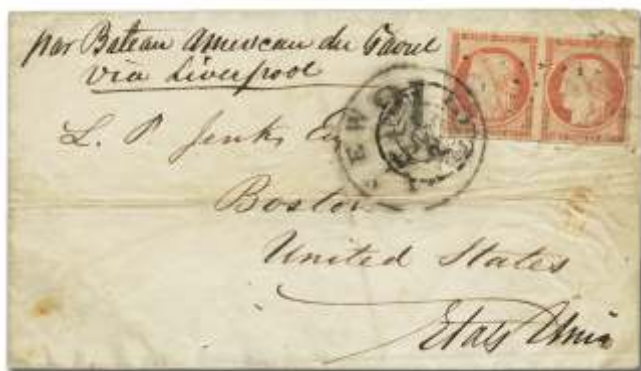 par Bateau Americain du
via Liverpool
L. P. Jenks
Boston
United States
Etats Unis
NEW
21